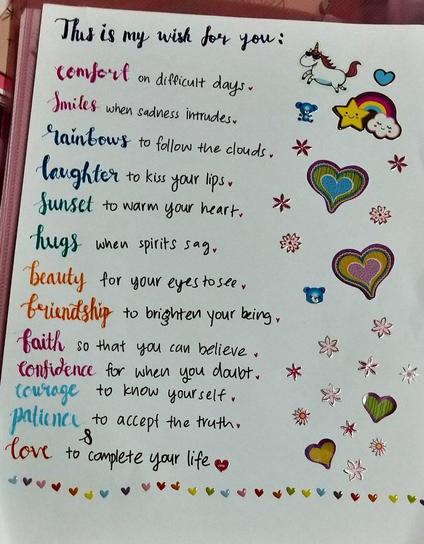 This is my wish for you:
comfort on difficult days.
Smiles when sadness intrudes.
rainbows to follow the clouds.
laughter to kiss your lips.
Sunset to warm your heart.
hugs when spirits sag.
beauty for your eyes to see.
friendship to brighten your being.
faith so that you can believe.
confidence for when you doubt.
courage to know yourself.
patience to accept the truth.
love to complete your life